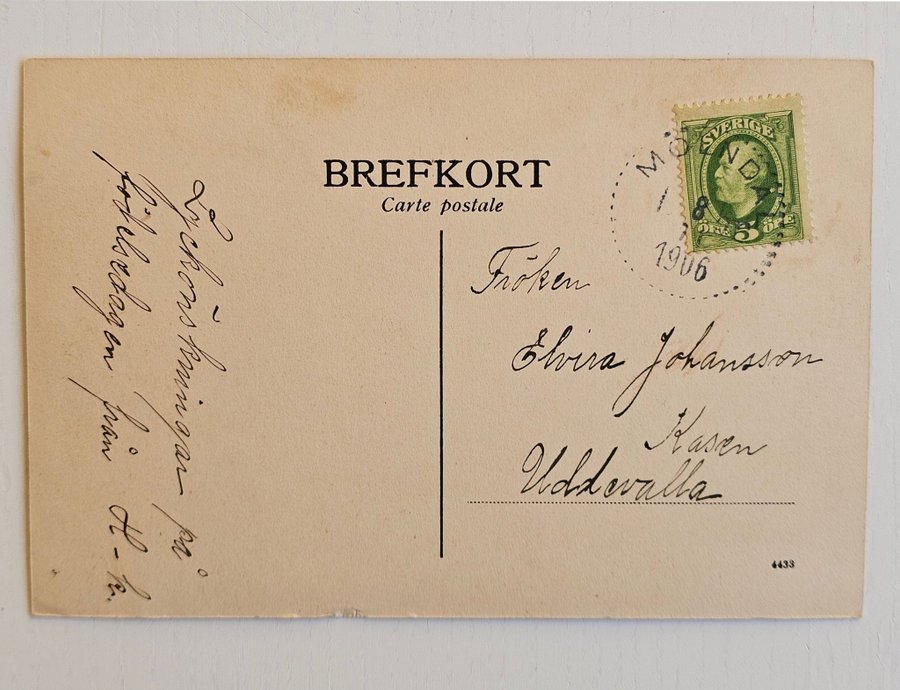 BREFKORT
Carte postale
SVERIGE
5 ÖRE
MÖLNDAL
8
1906
Lyckönskningar på
födelsedagen från H-k.
Fröken
Elvira Johansson
Kasen
Uddevalla
4433